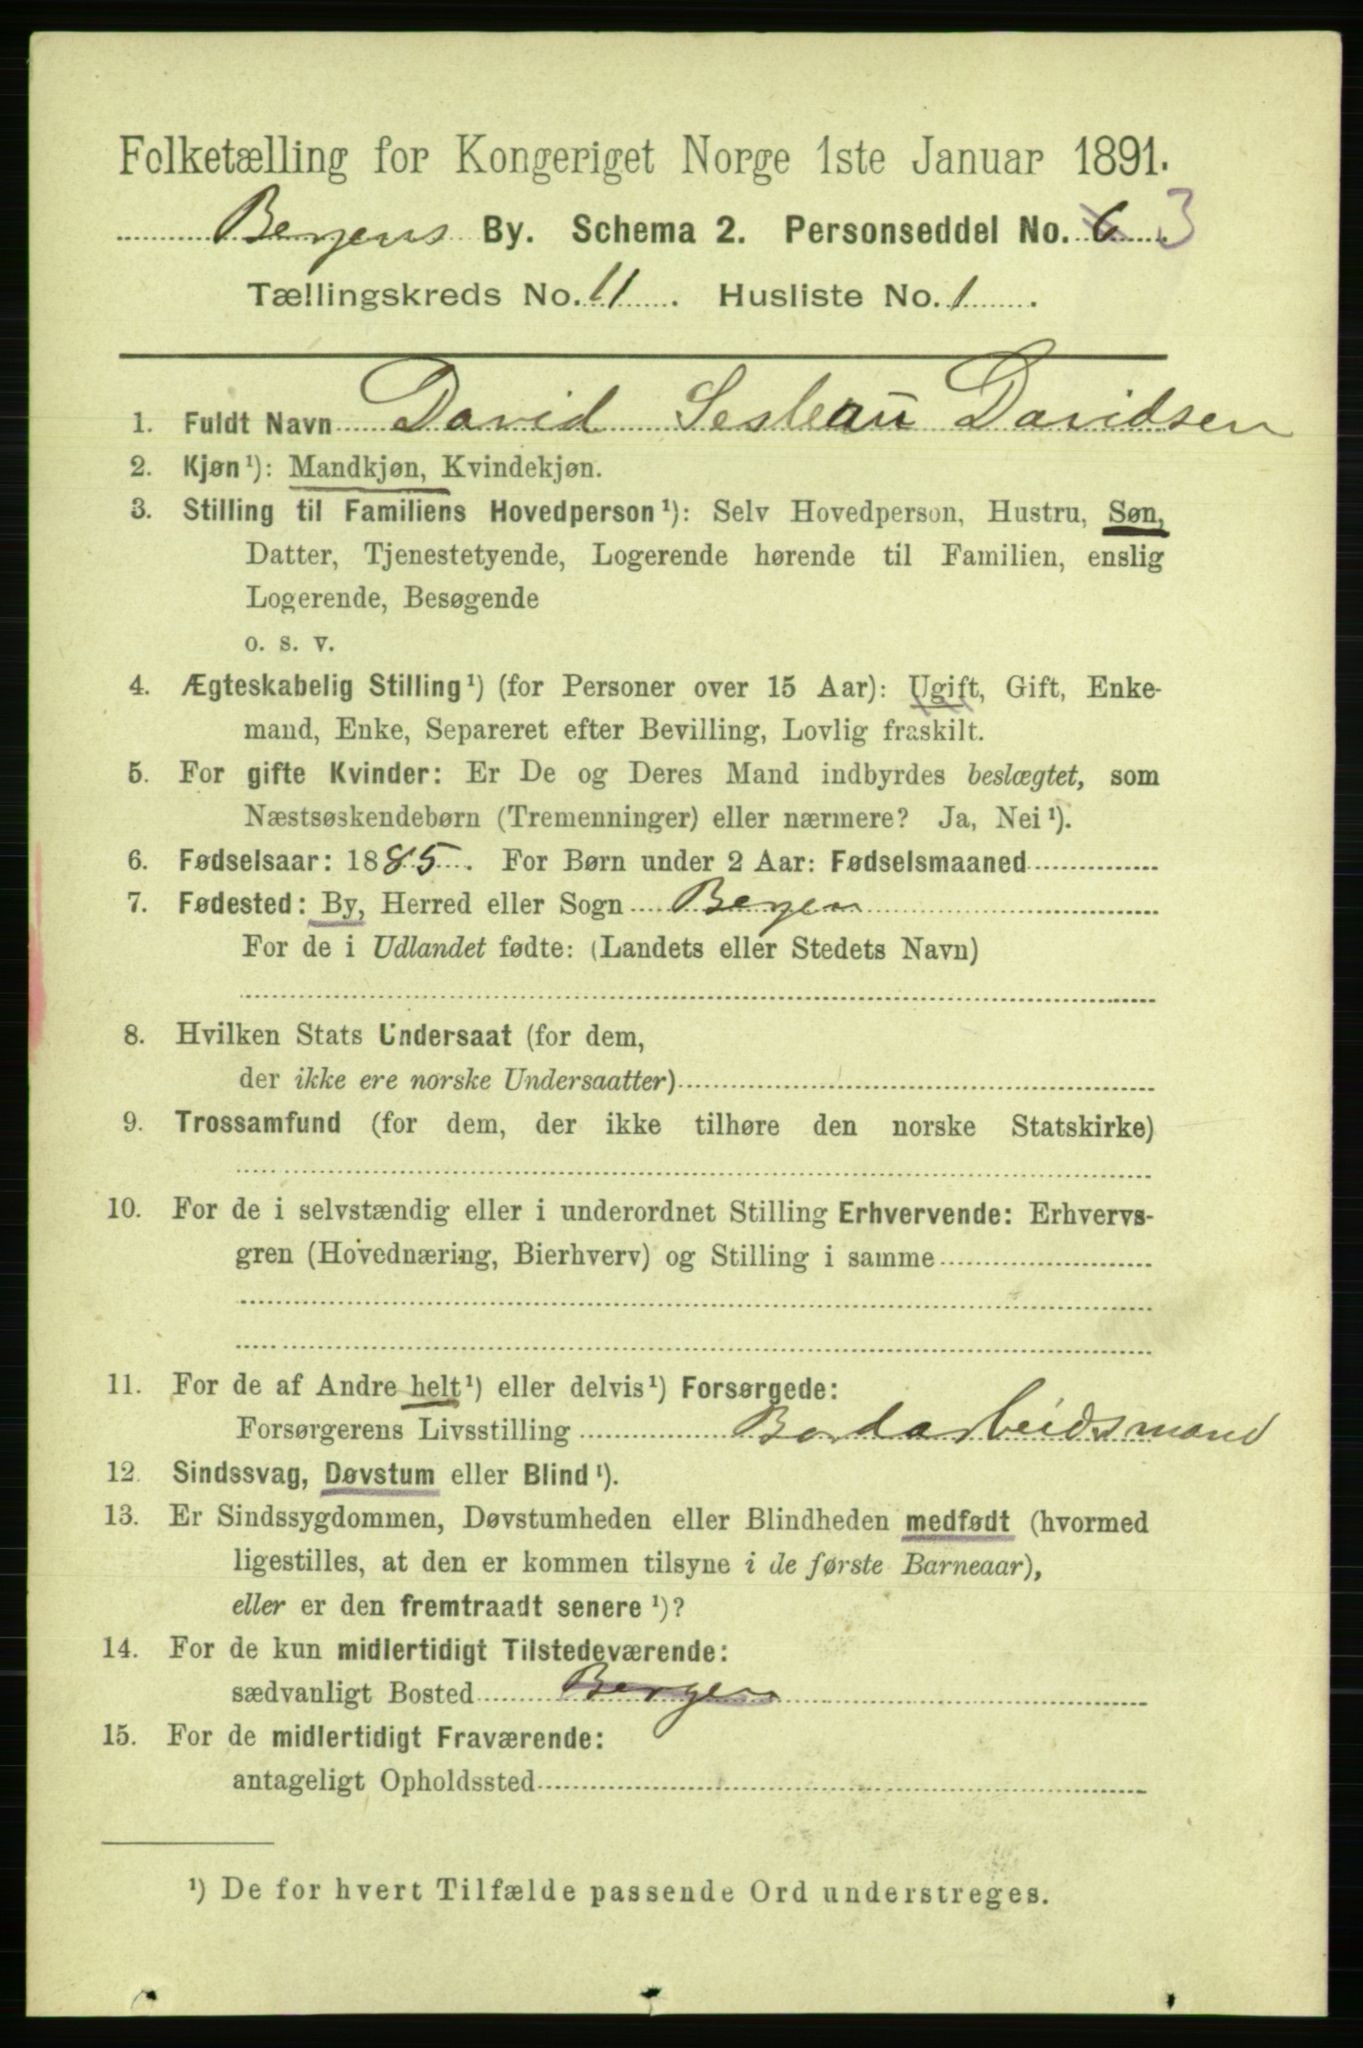 Folketælling for Kongeriget Norge 1ste Januar 1891.
Bergens By. Schema 2. Personseddel No. 6 3
Tællingskreds No. 11. Husliste No. 1.
1. Fuldt Navn David Davidsen
2. Kjøn¹): Mandkjøn, Kvindekjøn.
3. Stilling til Familiens Hovedperson¹): Selv Hovedperson, Hustru, Søn,
Datter, Tjenestetyende, Logerende hørende til Familien, enslig
Logerende, Besøgende
o. s. v.
4. Ægteskabelig Stilling¹) (for Personer over 15 Aar): Ugift, Gift, Enke-
mand, Enke, Separeret efter Bevilling, Lovlig fraskilt.
5. For gifte Kvinder: Er De og Deres Mand indbyrdes beslægtet, som
Næstsøskendebørn (Tremenninger) eller nærmere? Ja, Nei¹).
6. Fødselsaar: 1885. For Børn under 2 Aar: Fødselsmaaned
7. Fødested: By, Herred eller Sogn Bergen
For de i Udlandet fødte: (Landets eller Stedets Navn)
8. Hvilken Stats Undersaat (for dem,
der ikke ere norske Undersaatter)
9. Trossamfund (for dem, der ikke tilhøre den norske Statskirke)
10. For de i selvstændig eller i underordnet Stilling Erhvervende: Erhvervs-
gren (Hovednæring, Bierhverv) og Stilling i samme
11. For de af Andre helt¹) eller delvis¹) Forsørgede:
Forsørgerens Livsstilling Bordarbeidsmand
12. Sindssvag, Døvstum eller Blind¹).
13. Er Sindssygdommen, Døvstumheden eller Blindheden medfødt (hvormed
ligestilles, at den er kommen tilsyne i de første Barneaar),
eller er den fremtraadt senere¹)?
14. For de kun midlertidigt Tilstedeværende:
sædvanligt Bosted Bergen
15. For de midlertidigt Fraværende:
antageligt Opholdssted
¹) De for hvert Tilfælde passende Ord understreges.